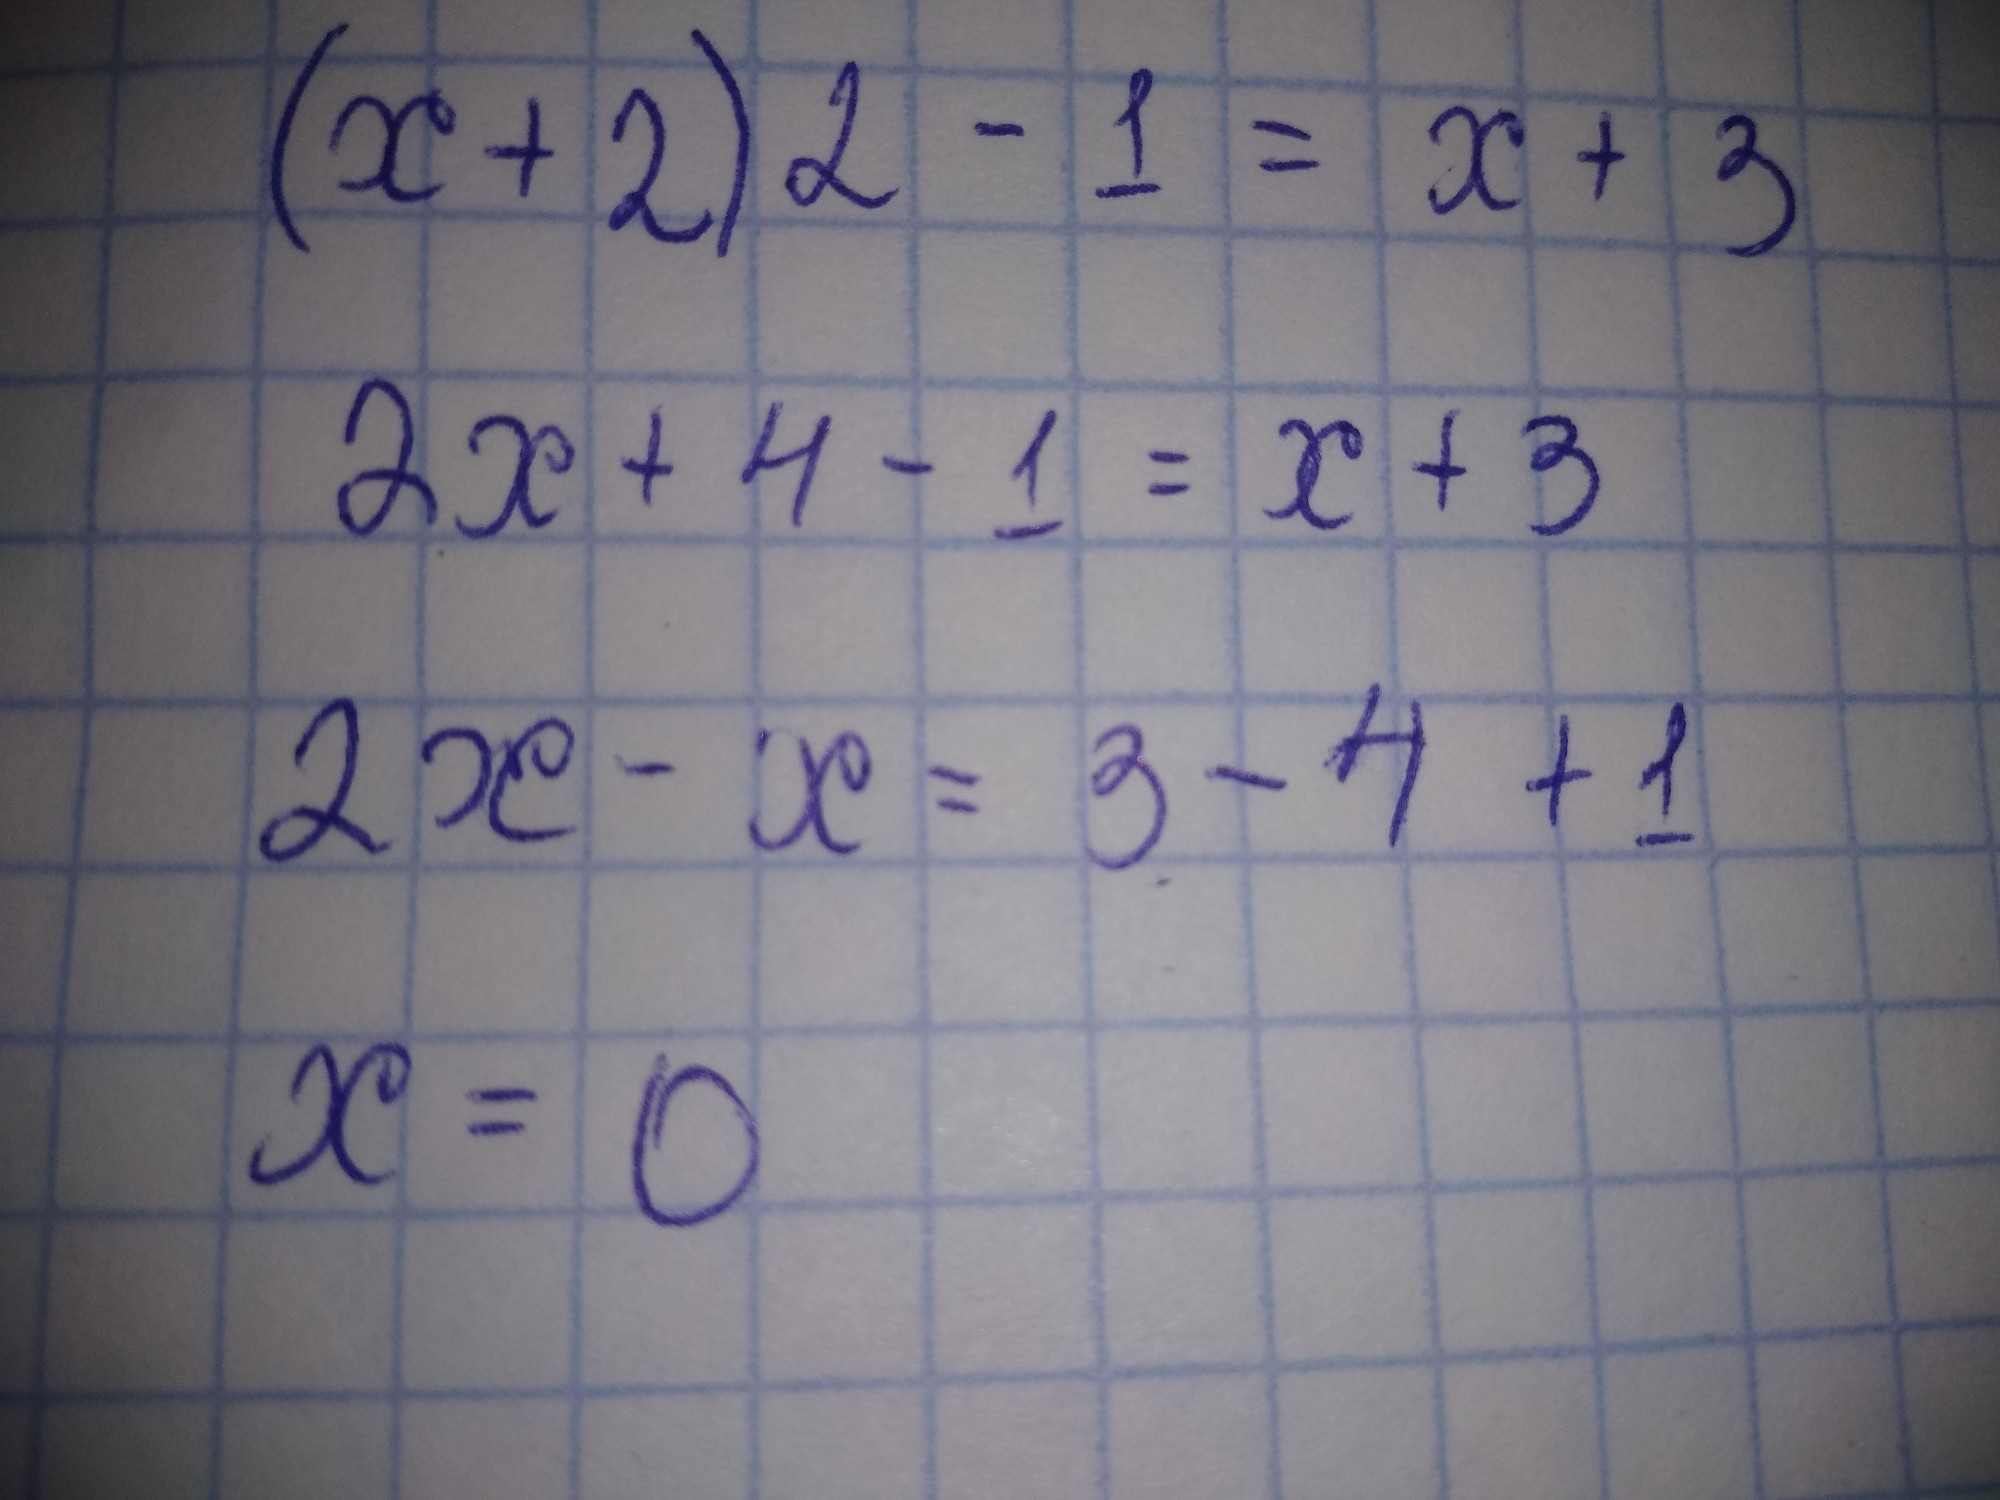 (x+2)2 - 1 = x + 3
2x + 4 - 1 = x + 3
2x - x = 3 - 4 + 1
x = 0